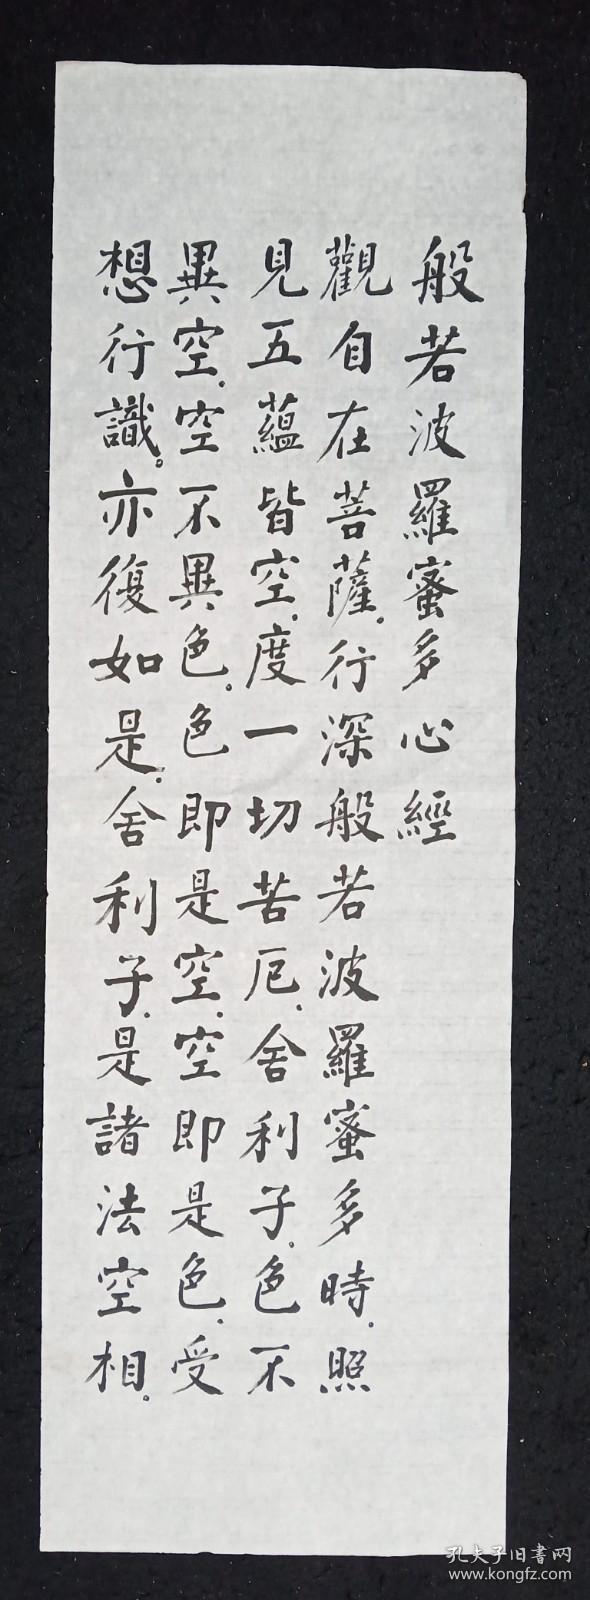 般若波羅蜜多心經
觀自在菩薩、行深般若波羅蜜多時、照
見五蘊皆空、度一切苦厄、舍利子、色不
異空、空不異色、色即是空、空即是色、受
想行識。亦復如是、舍利子、是諸法空相。
孔夫子旧書网
www.kongfz.com